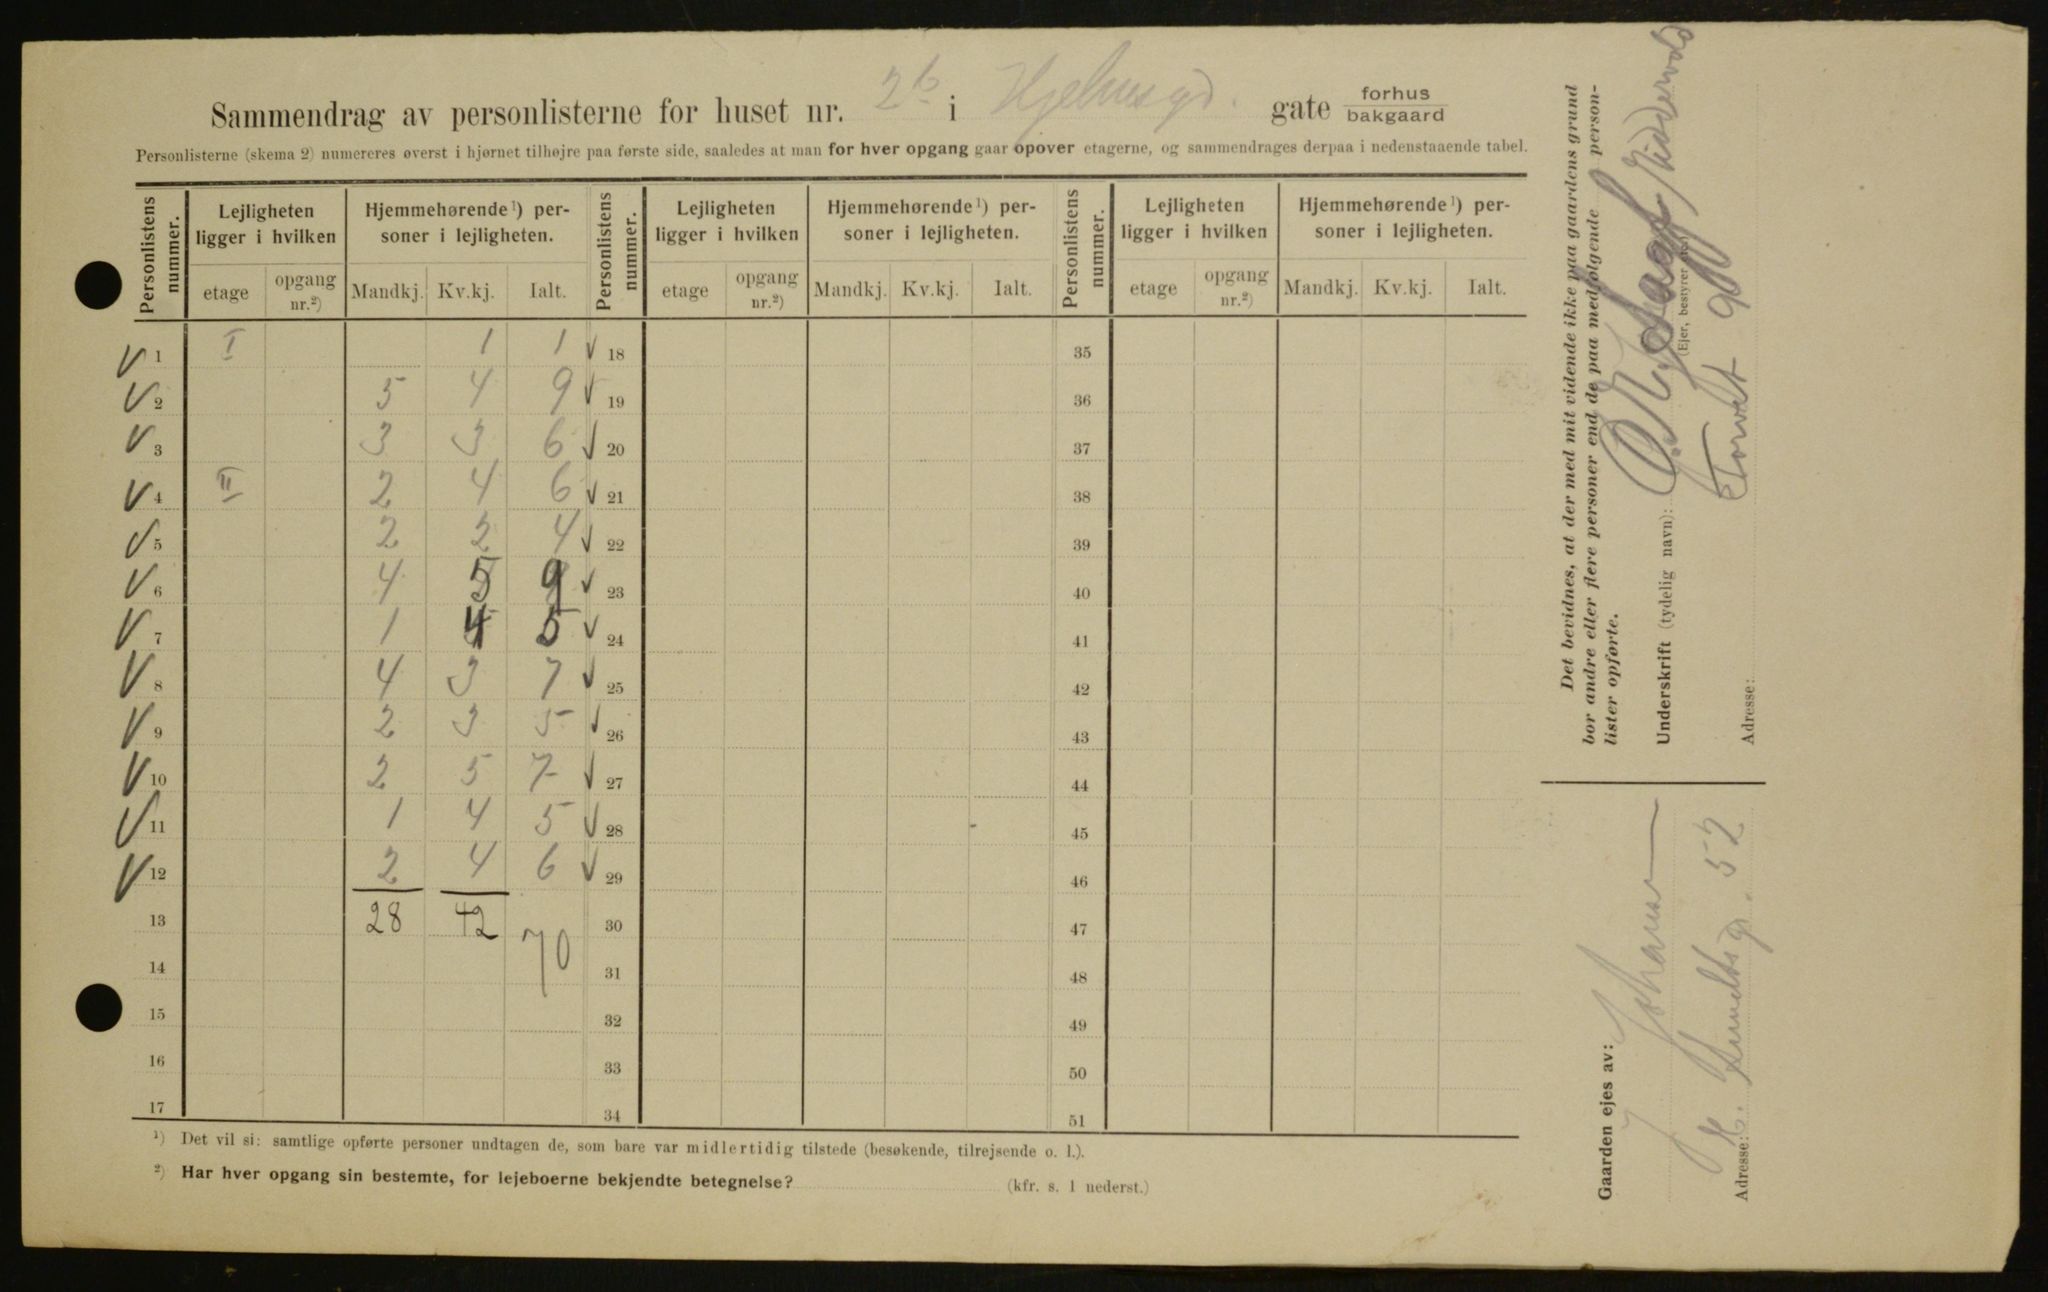 Sammendrag av personlisterne for huset nr. 2b i Hjelmsgd. gate forhus bakgaard
Personlisterne (skema 2) numereres øverst i hjørnet tilhøjre paa første side, saaledes at man for hver opgang gaar opover etagerne, og sammendrages derpaa i nedenstaaende tabel.
Personlistens nummer. Lejligheten ligger i hvilken Hjemmehørende 1) personer i lejligheten. Personlistens nummer. Lejligheten ligger i hvilken Hjemmehørende 1) personer i lejligheten. Personlistens nummer. Lejligheten ligger i hvilken Hjemmehørende 1) personer i lejligheten.
etage opgang nr.2) Mandkj. Kv.kj. Ialt. etage opgang nr.2) Mandkj. Kv.kj. Ialt. etage opgang nr.2) Mandkj. Kv.kj. Ialt.
V 1 I 1 1 ✓ 18 35
V 2 5 4 9 ✓ 19 36
V 3 3 3 6 ✓ 20 37
V 4 II 2 4 6 ✓ 21 38
V 5 2 2 4 ✓ 22 39
V 6 4 5 9 ✓ 23 40
V 7 1 4 5 ✓ 24 41
V 8 4 3 7 ✓ 25 42
V 9 2 3 5 ✓ 26 43
V 10 2 5 7 ✓ 27 44
V 11 1 4 5 ✓ 28 45
V 12 2 4 6 ✓ 29 46
13 28 42 70 30 47
14 31 48
15 32 49
16 33 50
17 34 51
1) Det vil si: samtlige opførte personer undtagen de, som bare var midlertidig tilstede (besøkende, tilrejsende o. l.).
2) Har hver opgang sin bestemte, for lejeboerne bekjendte betegnelse? (kfr. s. 1 nederst.)
Det bevidnes, at der med mit vidende ikke paa gaardens grund
bor andre eller flere personer end de paa medfølgende personlister opførte.
Underskrift (tydelig navn):
(Ejer, bestyrer etc.)
Adresse: Torvet 9
Gaarden ejes av: J. Johansen
Adresse: gd. 52